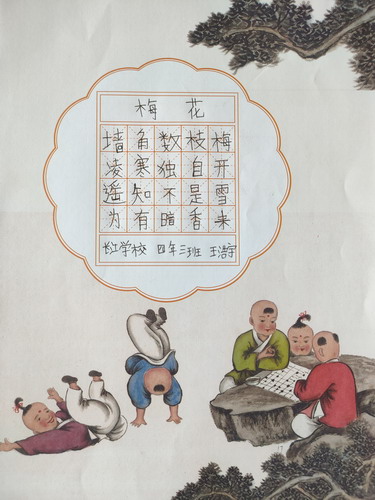 梅花
墙角数枝梅
凌寒独自开
遥知不是雪
为有暗香来
长江学校 四年三班 王浩宇